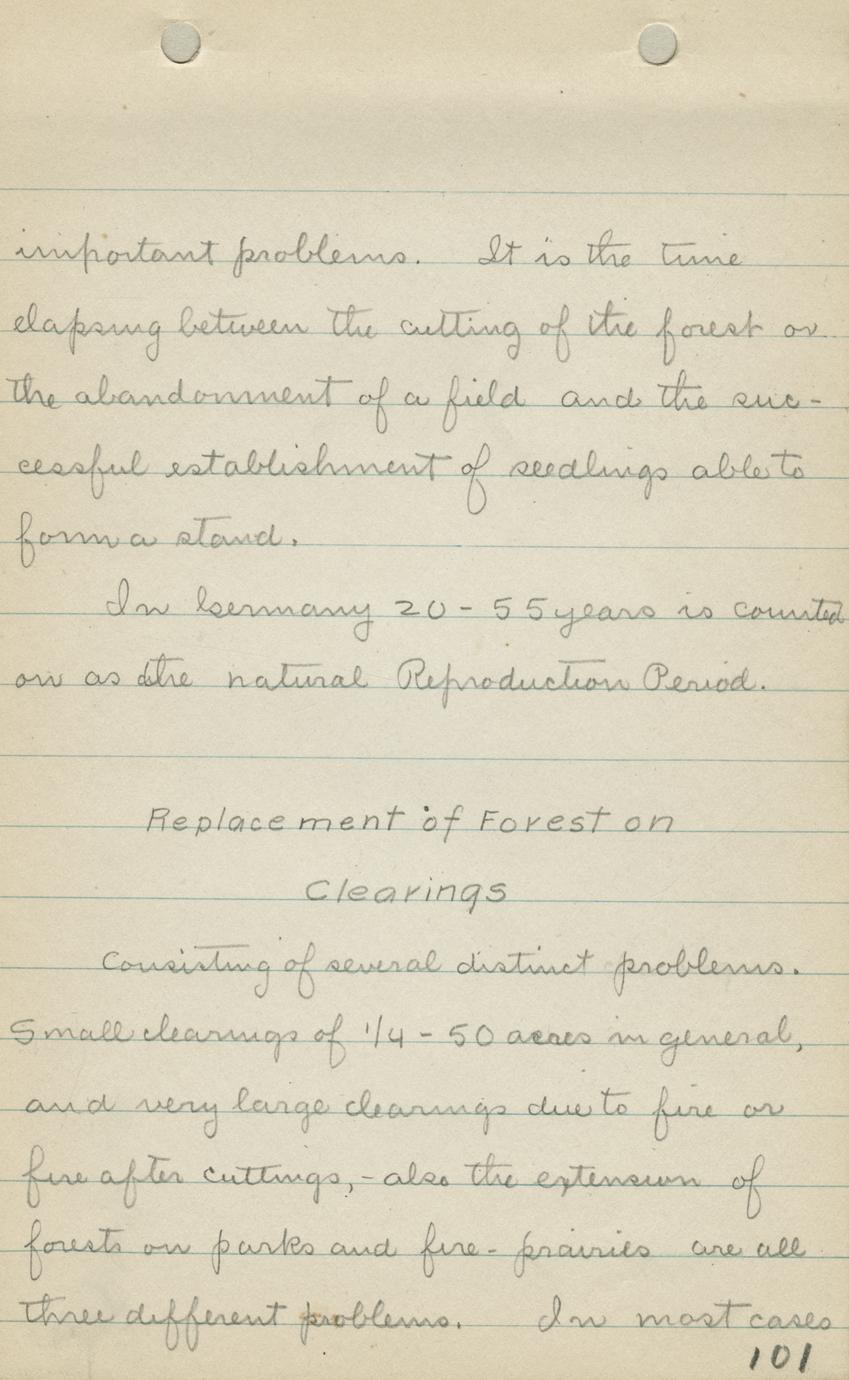 important problems. It is the time
elapsing between the cutting of the forest or
the abandonment of a field and the suc-
cessful establishment of seedlings able to
form a stand.
In Germany 20 - 55 years is counted
on as the natural Reproduction Period.
Replacement of Forest on
Clearings
Consisting of several distinct problems.
Small clearings of 1/4 - 50 acres in general,
and very large clearings due to fire or
fire after cuttings, - also the extension of
forests on parks and fire - prairies are all
three different problems. In most cases
101